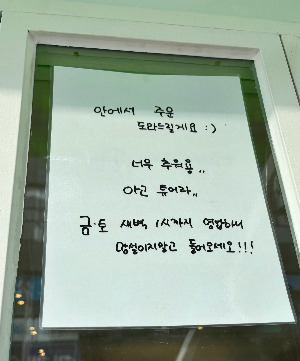 안에서 주문
도와드릴게요 :)
너무 추워용..
아고 튜어라..
금·토 새벽 1시까지 영업하니
망설이지않고 들어오세요!!!